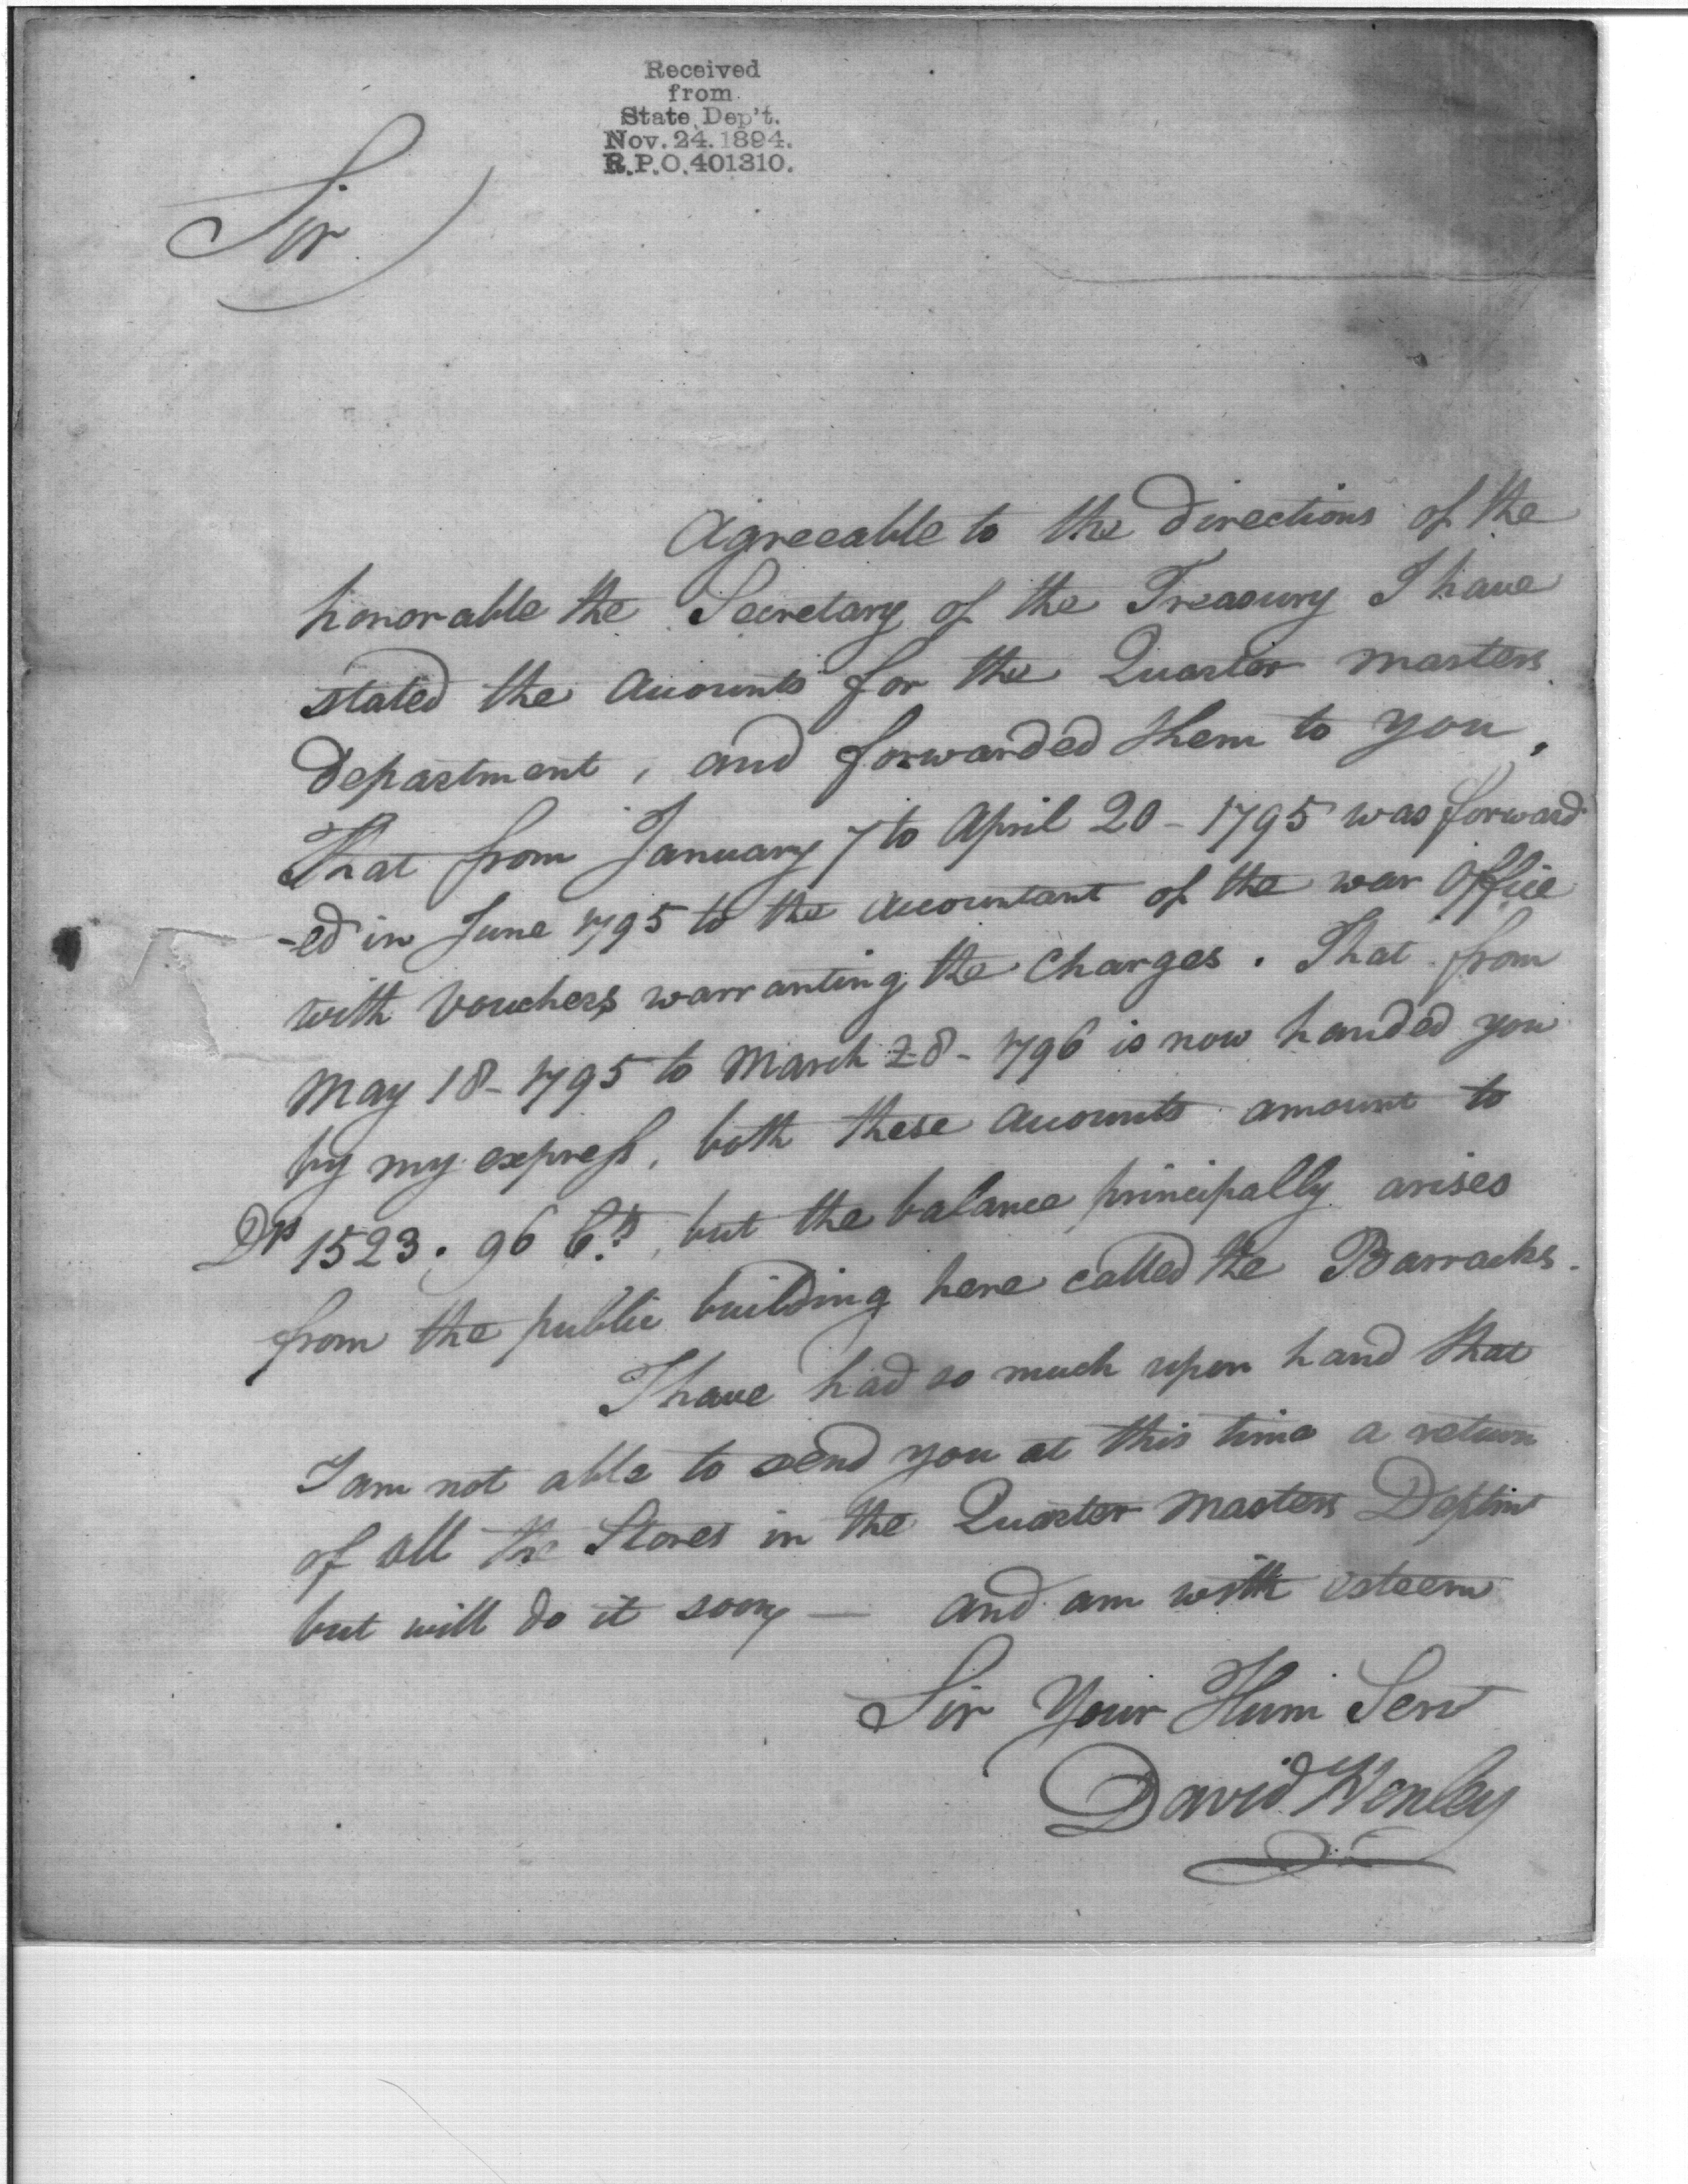 Received
from
State Dep't.
Nov. 24. 1894.
R.P.O. 401310.
Sir
Agreeable to the directions of the
honorable the Secretary of the Treasury I have
stated the Accounts for the Quarter masters
Department, and forwarded them to you.
That from January 7 to April 20 - 1795 was forward
-ed in June 1795 to the Accountant of the war office
with Vouchers warranting the Charges. That from
May 18 - 1795 to March 28 - 1796 is now handed you
by my express, both these accounts amount to
Drs 1523. 96 Cts, but the balance principally arises
from the public building here called the Barracks.
I have had so much upon hand that
I am not able to send you at this time a return
of all the Stores in the Quarter Masters Deptmt
but will do it soon — and am with esteem
Sir Your Hum Servt
David Henley